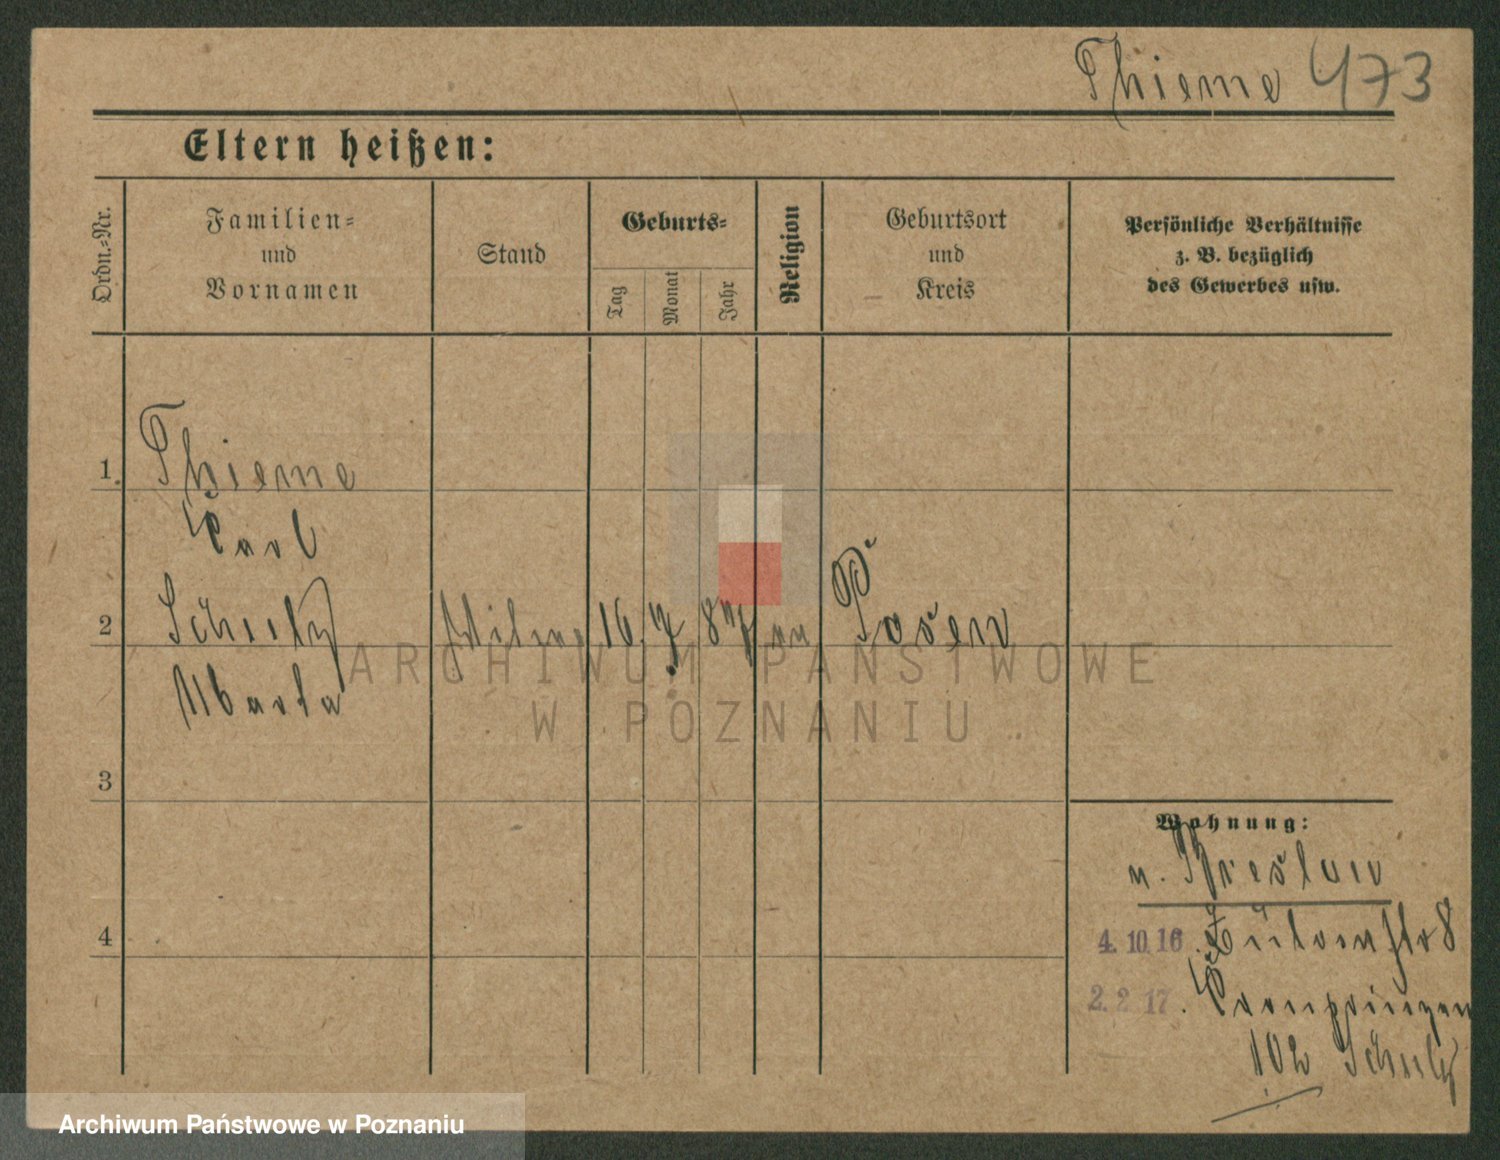 Thieme 473
Eltern heißen:
Ordn.-Nr.
Familien-
und
Vornamen
Stand
Geburts-
Tag
Monat
Jahr
Religion
Geburtsort
und
Kreis
Persönliche Verhältnisse
z. B. bezüglich
des Gewerbes usw.
1.
Thieme
Carl
2
Schulz 16. 7. 87 Posen
Marta
3
4
Wohnung:
n. Breslau
4.10.16.
2.2 17. Cronprinzen
102 Schulz
ARCHIWUM PAŃSTWOWE
W POZNANIU
Archiwum Państwowe w Poznaniu